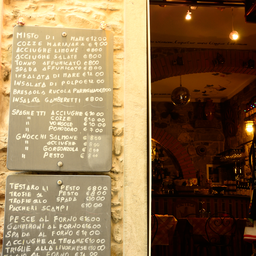 MISTO DI MARE €12.00
COZZE MARINARA €9.00
ACCIUGHE LIMONE €8.00
ACCIUGHE SALATE €8.00
TONNO AFFUMICATO €8.00
SPADA AFFUMICATO €8.00
INSALATA DI MARE €10.00
INSALATA DI POLPO €10.00
BRESAOLA RUCOLA PARMIGIANO €8.00
INSALATA GAMBERETTI €8.00
SPAGHETTI ACCIUGHE €10.00
" COZZE
" VONGOLE
" POMODORO
GNOCCHI SALMONE
" ACCIUGHE
" GORGONZOLA
" PESTO
TESTAROLI PESTO €8.00
TROFIE AL PESTO €8.00
TROFIE ALLO SPADA
PACCHERI SCAMPI €10.00
PESCE AL FORNO
GAMBERONI AL FORNO
SPADA AL FORNO
ACCIUGHE AL TEGAME
TRIGLIE ALLA LIVORNESE
AL FORNO